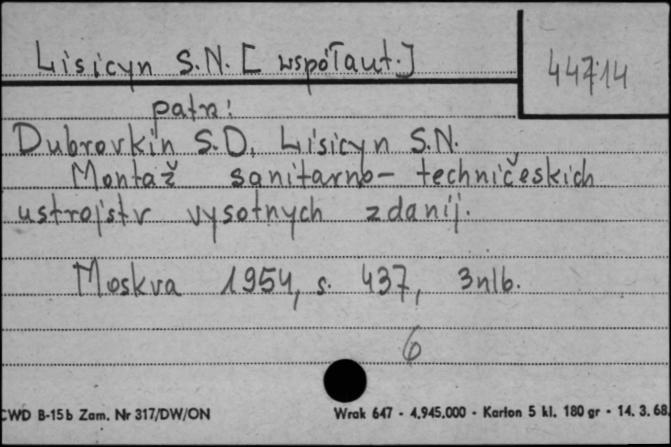 Lisicyn S.N. [współaut.]
44714
patrz:
Dubrovkin S.D., Lisicyn S.N.
Montaž sanitarno-techničeskich
ustrojstv vysotnych zdanij.
Moskva 1954, s. 437, 3nlb.
6
CWD B-15b Zam. Nr 317/DW/ON
Wrak 647 - 4.945.000 - Karton 5 kl. 180 gr - 14. 3. 68.